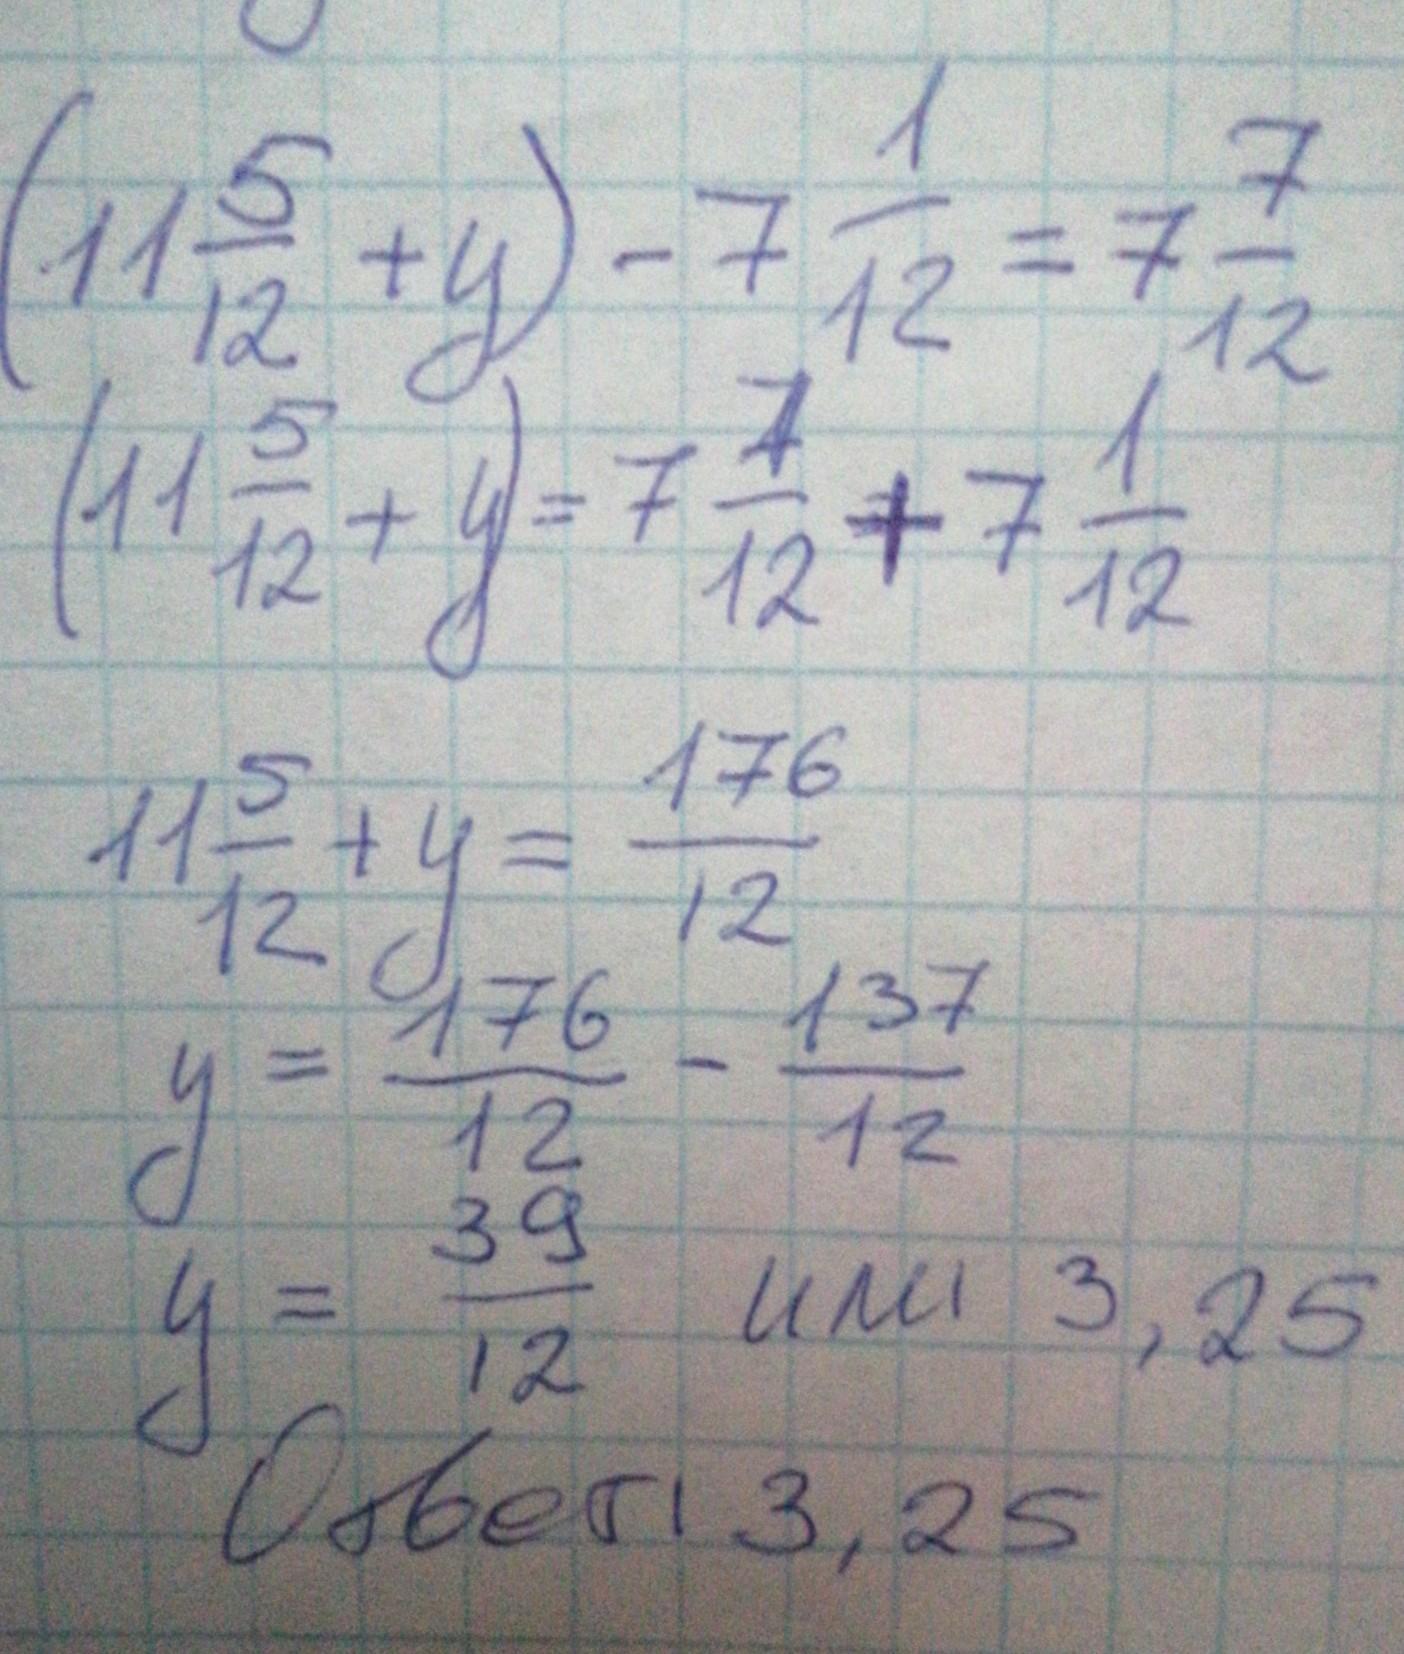 (11 5/12 + y) - 7 1/12 = 7 7/12
(11 5/12 + y) = 7 7/12 + 7 1/12
11 5/12 + y = 176/12
y = 176/12 - 137/12
y = 39/12 или 3,25
Ответ: 3,25